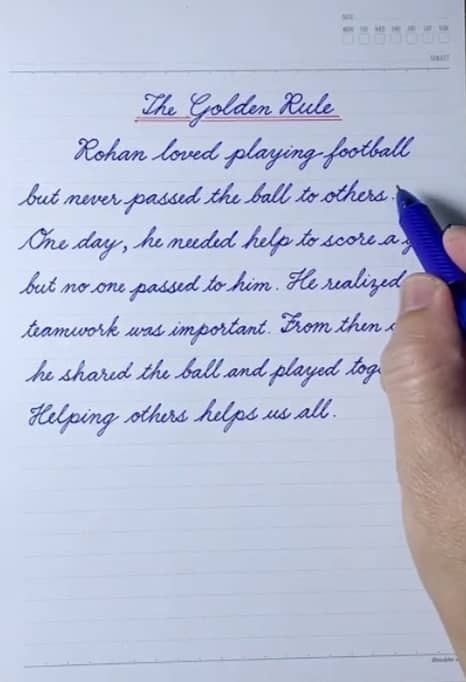 DATE
MON TUE WED THU FRI SAT SUN
SUBJECT
The Golden Rule
Rohan loved playing football
but never passed the ball to others.
One day, he needed help to score a
but no one passed to him. He realized
teamwork was important. From then
he shared the ball and played
Helping others helps us all.